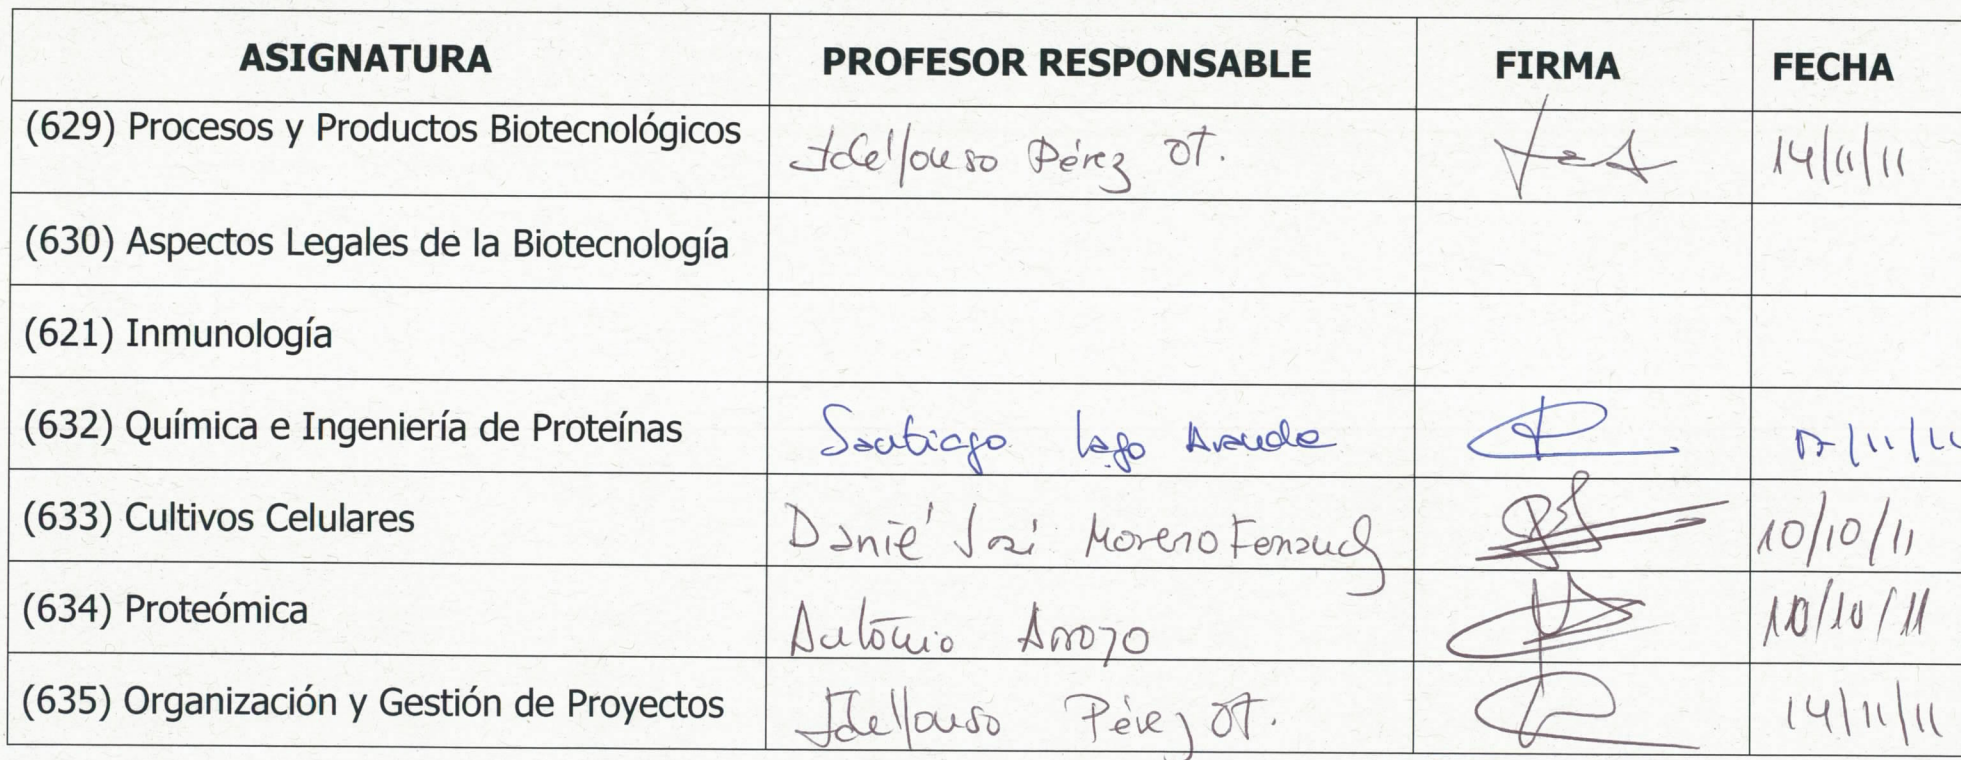 ASIGNATURA PROFESOR RESPONSABLE FIRMA FECHA
(629) Procesos y Productos Biotecnológicos Idelfonso Pérez OT. 14/11/11
(630) Aspectos Legales de la Biotecnología
(621) Inmunología
(632) Química e Ingeniería de Proteínas Santiago Lago Aranda 17/11/11
(633) Cultivos Celulares Moreno 10/10/11
(634) Proteómica Antonio Arroyo 10/10/11
(635) Organización y Gestión de Proyectos Idelfonso Pérez OT. 14/11/11